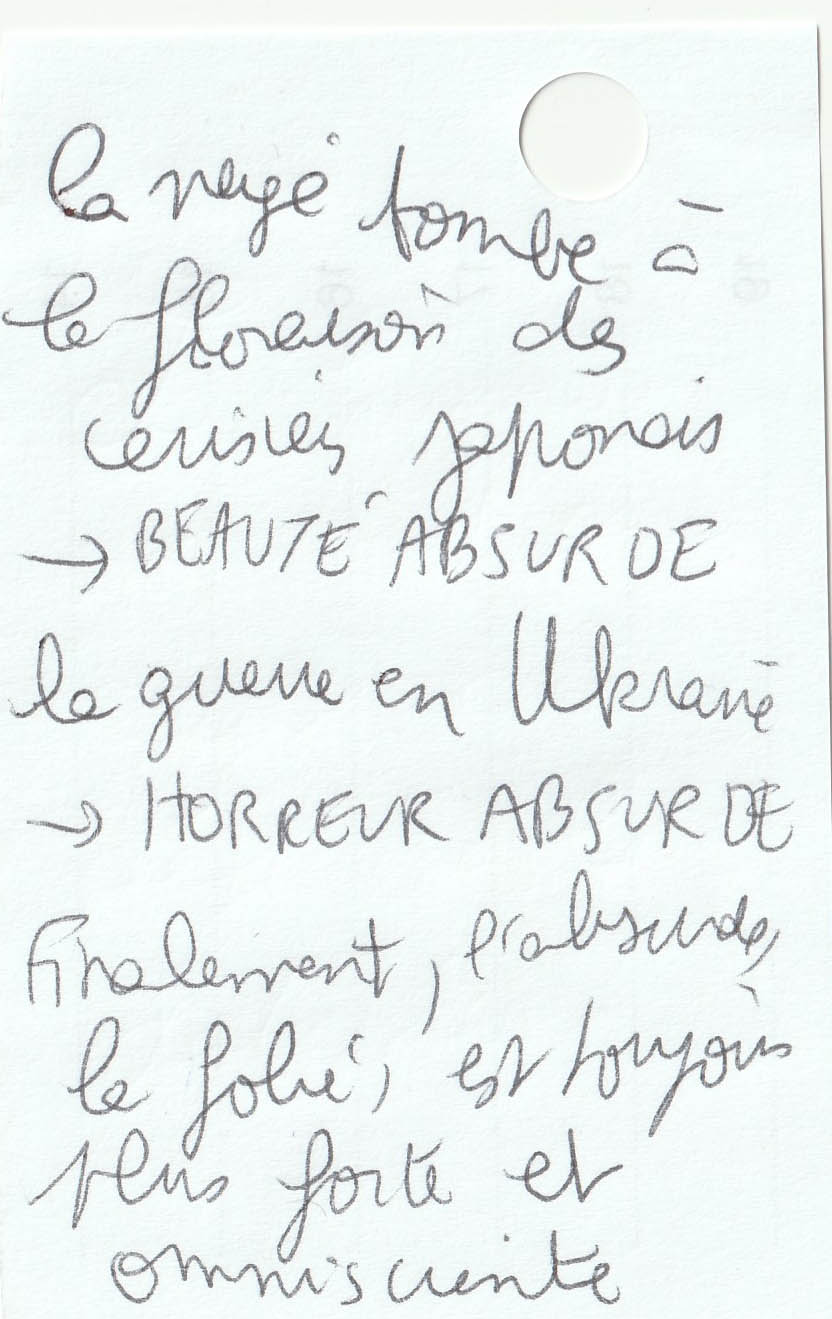 la neige tombe à
la floraison des
cerisiers japonais
→ BEAUTÉ ABSURDE
la guerre en Ukraine
→ HORREUR ABSURDE
Finalement, l'absurde,
la folie, est toujours
plus forte et
omnisciente